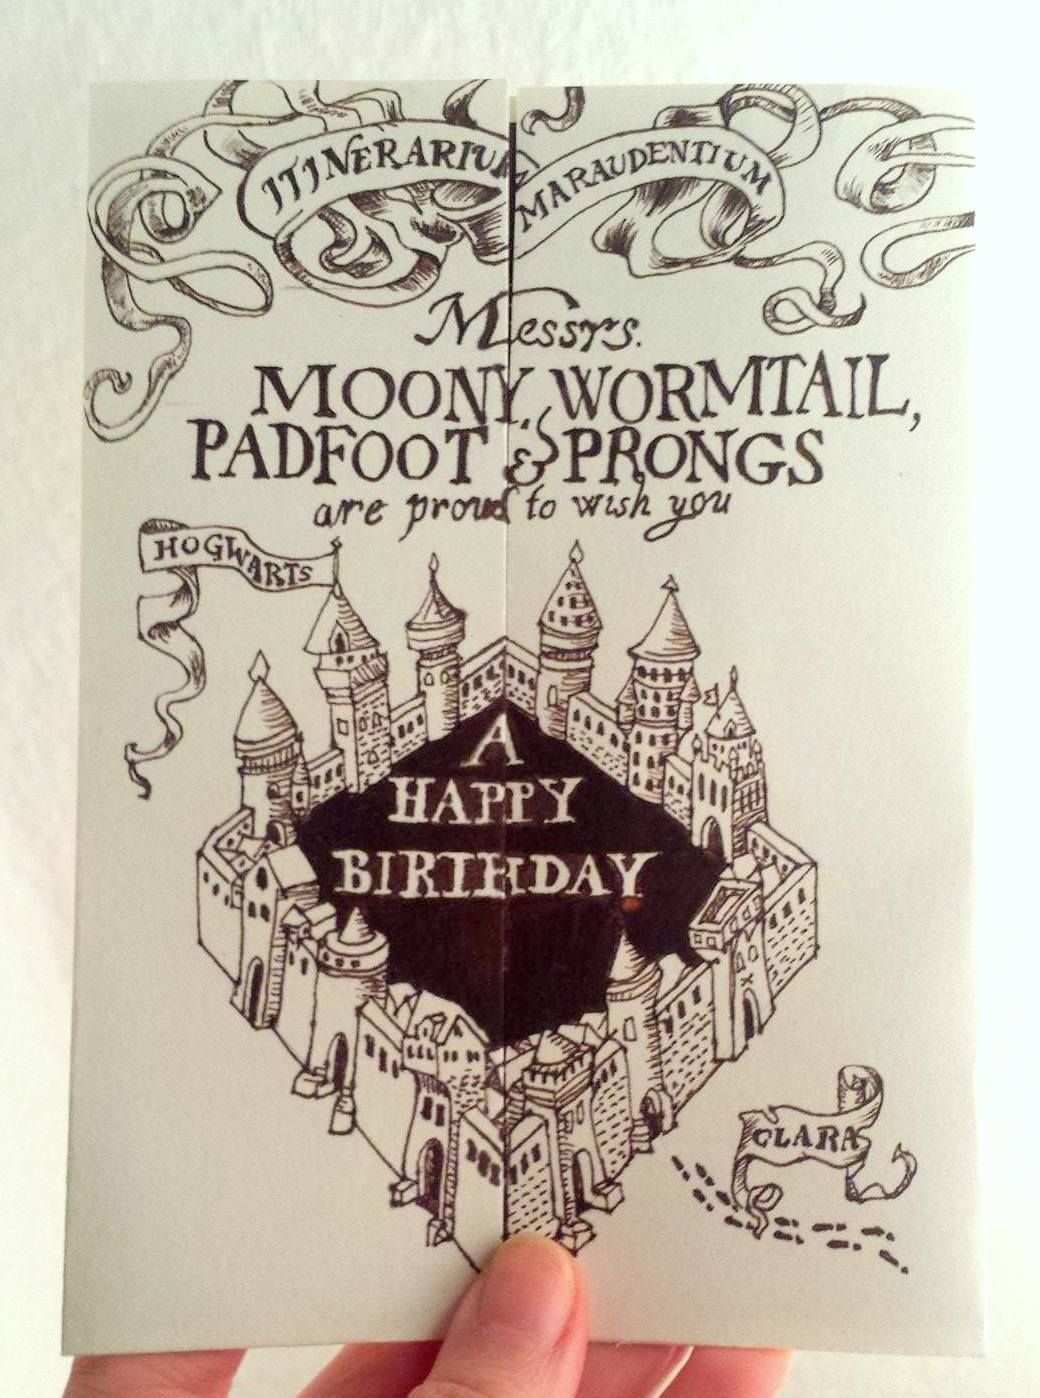 ITINERARIUM MARAUDENTIUM
Messrs.
MOONY, WORMTAIL,
PADFOOT & PRONGS
are proud to wish you
HOGWARTS
A
HAPPY
BIRTHDAY
CLARA